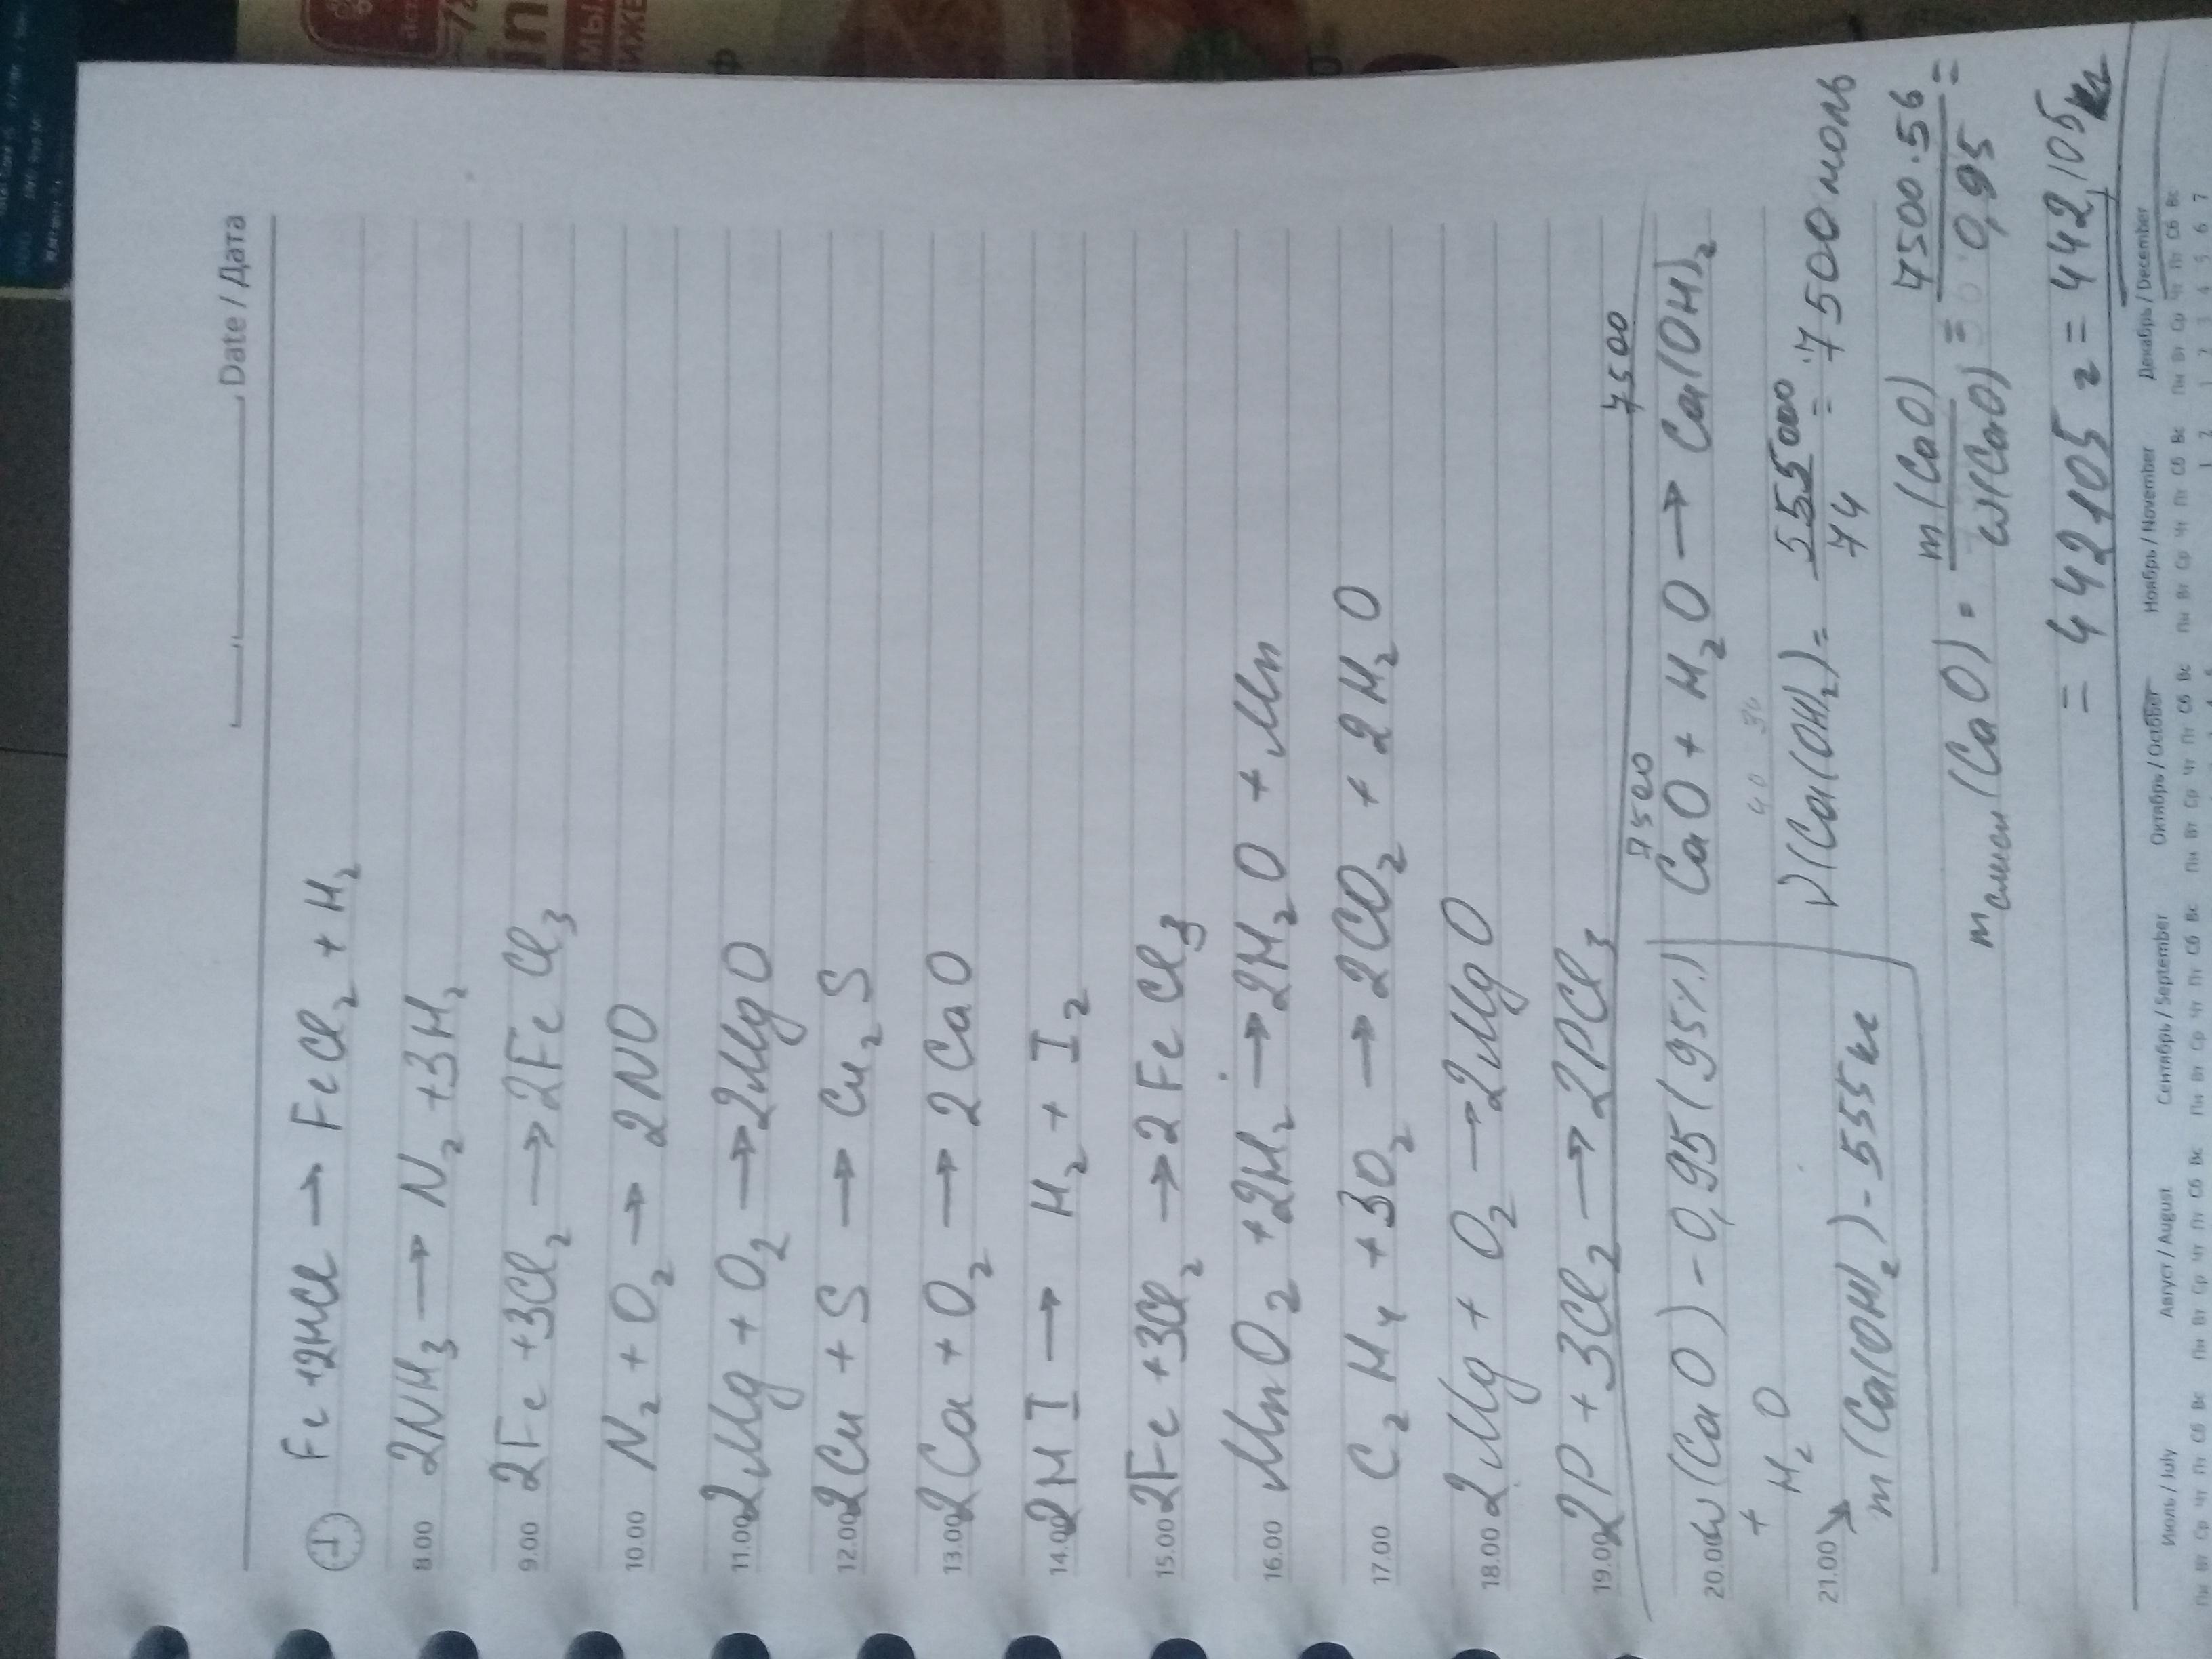 Date / Дата
Fe + 2HCl → FeCl₂ + H₂
8.00 2NH₃ → N₂ + 3H₂
9.00 2Fe + 3Cl₂ → 2FeCl₃
10.00 N₂ + O₂ → 2NO
11.00 2Mg + O₂ → 2MgO
12.00 2Cu + S → Cu₂S
13.00 2Ca + O₂ → 2CaO
14.00 2HI → H₂ + I₂
15.00 2Fe + 3Cl₂ → 2FeCl₃
16.00 MnO₂ + 2H₂ → 2H₂O + Mn
17.00 C₂H₄ + 3O₂ → 2CO₂ + 2H₂O
18.00 2Mg + O₂ → 2MgO
19.00 2P + 3Cl₂ → 2PCl₃
20.00 w(CaO) - 0,95 (95%)
+ H₂O
21.00 → m(Ca(OH)₂) - 555 кг
7500 7500
CaO + H₂O → Ca(OH)₂
ν(Ca(OH)₂) = 555000 / 74 = 7500 моль
m смеси (CaO) = m(CaO) / w(CaO) = 7500 · 56 / 0,95 =
= 442105 г = 442,105 кг
Июль / July Август / August Сентябрь / September Октябрь / October Ноябрь / November Декабрь / December